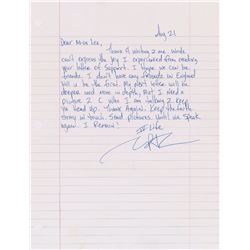 Aug 21
Dear Miss Lee,
Thanx 4 writing 2 me. Words
can't express the joy I experienced from reading
your letter of Support. I hope we can be
friends. I don't have any friends in England
will U be the first. My next letter will be
deeper and more in depth, But I need a
picture 2 C who I am talking 2. Keep
Ya Head Up. Thanx Again. Keep the faith
Stay in touch. Send pictures. Until we Speak
again I Remain!
Life